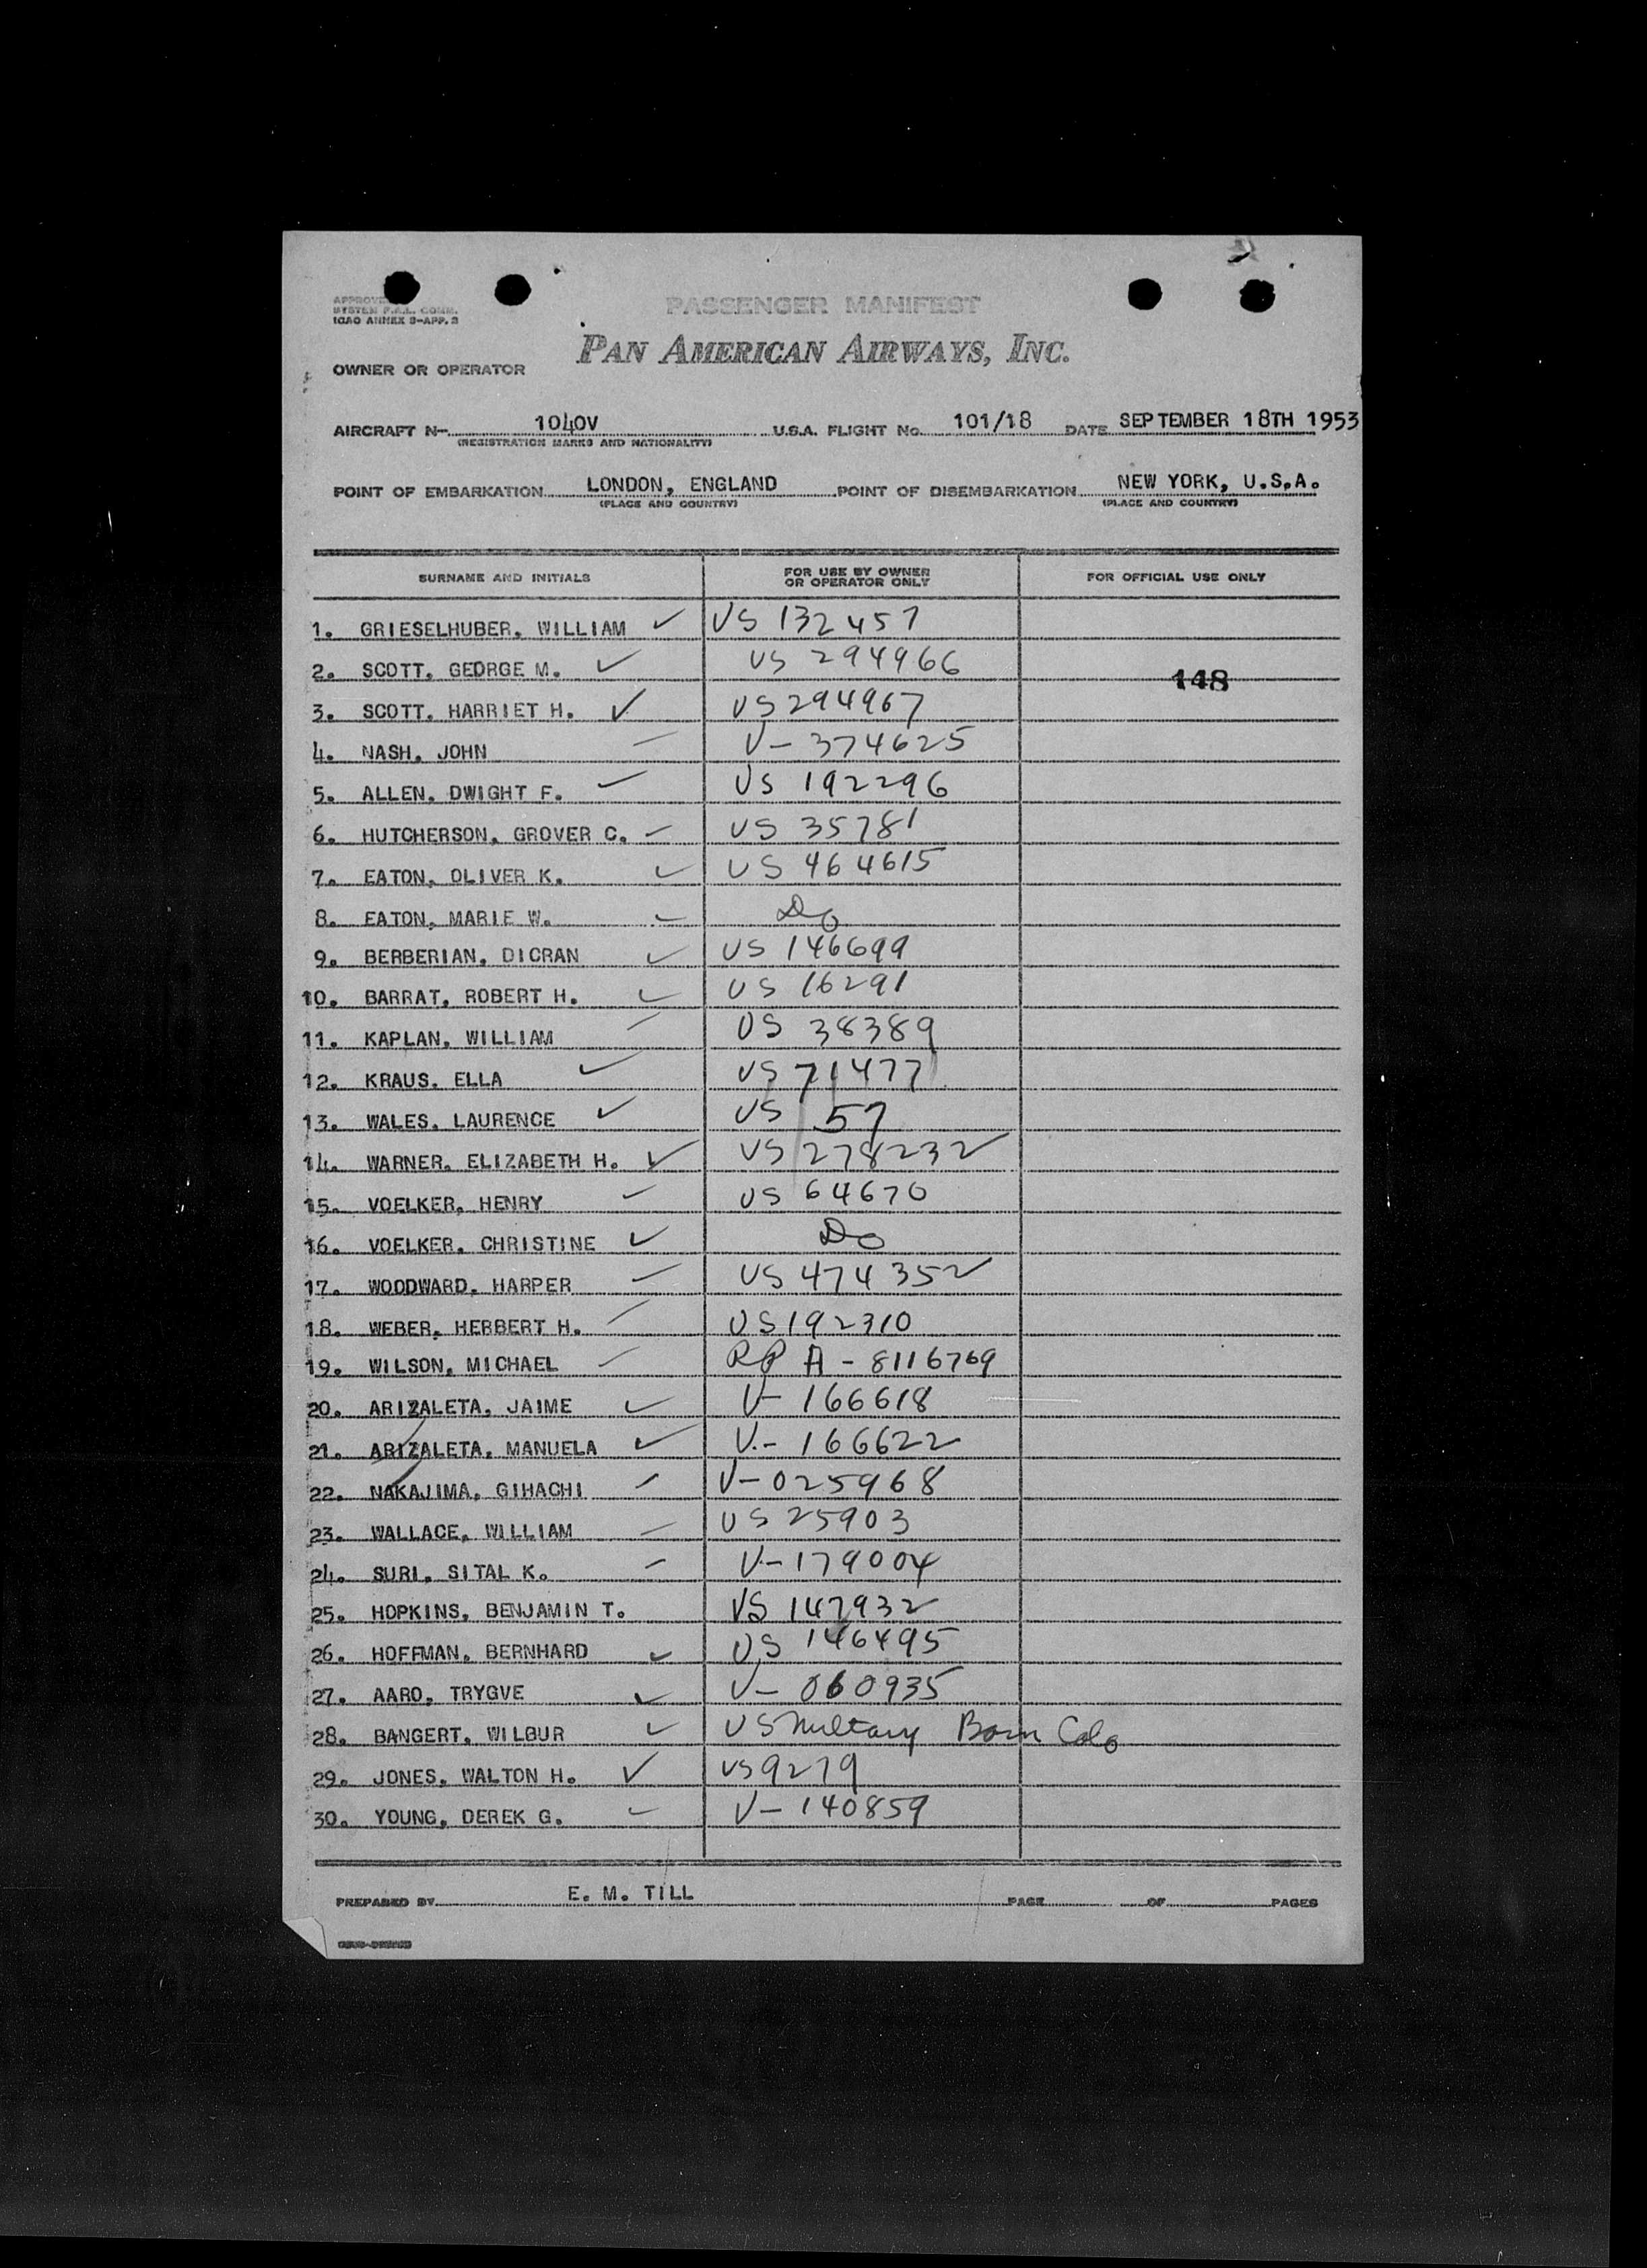 APPROVED
SYSTEM F.A.L. COMM.
ICAO ANNEX 9-APP. 3
PASSENGER MANIFEST
PAN AMERICAN AIRWAYS, INC.
OWNER OR OPERATOR
AIRCRAFT N- 1040V U.S.A. FLIGHT No. 101/18 DATE SEPTEMBER 18TH 1953
(REGISTRATION MARKS AND NATIONALITY)
POINT OF EMBARKATION LONDON, ENGLAND POINT OF DISEMBARKATION NEW YORK, U.S.A.
(PLACE AND COUNTRY) (PLACE AND COUNTRY)
SURNAME AND INITIALS FOR USE BY OWNER OR OPERATOR ONLY FOR OFFICIAL USE ONLY
1. GRIESELHUBER, WILLIAM ✓ US 132457
2. SCOTT, GEORGE M. ✓ US 294966
148
3. SCOTT, HARRIET H. ✓ US 294967
4. NASH, JOHN V- 374625
5. ALLEN, DWIGHT F. US 192296
6. HUTCHERSON, GROVER C. US 35781
7. EATON, OLIVER K. ✓ US 464615
8. EATON, MARIE W. Do
9. BERBERIAN, DICRAN ✓ US 146699
10. BARRAT, ROBERT H. ✓ US 16291
11. KAPLAN, WILLIAM US 38389
12. KRAUS, ELLA ✓ US 71477
13. WALES, LAURENCE ✓ US 57
14. WARNER, ELIZABETH H. ✓ US 278232
15. VOELKER, HENRY US 64670
16. VOELKER, CHRISTINE ✓ Do
17. WOODWARD, HARPER US 474352
18. WEBER, HERBERT H. US 192310
19. WILSON, MICHAEL RP A - 8116769
20. ARIZALETA, JAIME ✓ V- 166618
21. ARIZALETA, MANUELA ✓ V- 166622
22. NAKAJIMA, GIHACHI V-025968
23. WALLACE, WILLIAM US 25903
24. SURI, SITAL K. V-179004
25. HOPKINS, BENJAMIN T. US 147932
26. HOFFMAN, BERNHARD ✓ US 146495
27. AARO, TRYGVE ✓ V- 060935
28. BANGERT, WILBUR ✓ US Military Born Colo
29. JONES, WALTON H. ✓ US 9279
30. YOUNG, DEREK G. V- 140859
PREPARED BY E. M. TILL PAGE OF PAGES